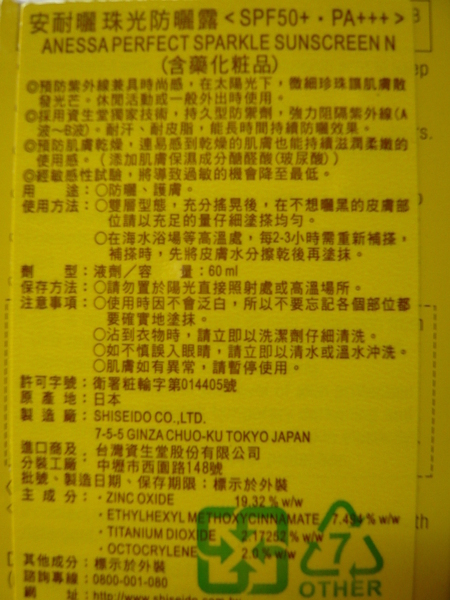 安耐曬 珠光防曬露<SPF50+・PA+++>
ANESSA PERFECT SPARKLE SUNSCREEN N
(含藥化粧品)
◎預防紫外線兼具時尚感，在太陽光下，微細珍珠讓肌膚散
發光芒。休閒活動或一般外出時使用。
◎採用資生堂獨家技術，持久型防禦劑，強力阻隔紫外線(A
波～B波)。耐汗、耐皮脂，能長時間持續防曬效果。
◎預防肌膚乾燥，連易感到乾燥的肌膚也能持續滋潤柔嫩的
使用感。(添加肌膚保濕成分醣醛酸(玻尿酸))
◎經敏感性試驗，將導致過敏的機會降至最低。
用　　途：○防曬、護膚。
使用方法：○雙層型態，充分搖晃後，在不想曬黑的皮膚部
位請以充足的量仔細塗搽均勻。
○在海水浴場等高溫處，每2-3小時需重新補搽。
補搽時，先將皮膚水分擦乾後再塗抹。
劑　　型：液劑／容　　量：60 ml
保存方法：○請勿置於陽光直接照射處或高溫場所。
注意事項：○使用時因不會泛白，所以不要忘記各個部位都
要確實地塗抹。
○沾到衣物時，請立即以洗潔劑仔細清洗。
○如不慎誤入眼睛，請立即以清水或溫水沖洗。
○肌膚如有異常，請暫停使用。
許可字號：衛署粧輸字第014405號
原 產 地：日本
製 造 廠：SHISEIDO CO.,LTD.
7-5-5 GINZA CHUO-KU TOKYO JAPAN
進口商及：台灣資生堂股份有限公司
分裝工廠 中壢市西園路148號
批號、製造日期、保存期限：標示於外裝
主 成 分：・ZINC OXIDE 19.32 % w/w
・ETHYLHEXYL METHOXYCINNAMATE 7.494 % w/w
・TITANIUM DIOXIDE 2.17252 % w/w
・OCTOCRYLENE 2.0 % w/w
其他成分：標示於外裝
諮詢專線：0800-001-080
網　　址：http://www.shiseido.com.tw
7
OTHER